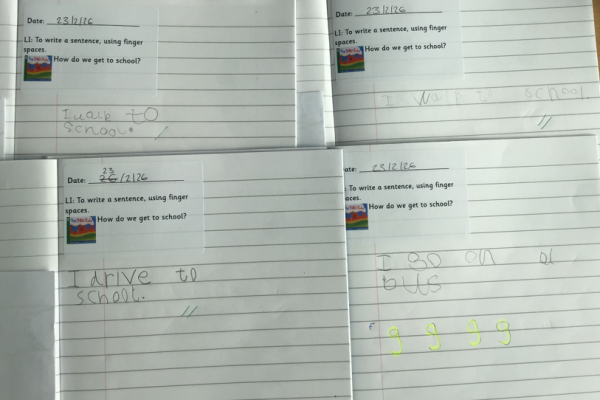 Date: 23/2/26
LI: To write a sentence, using finger
spaces.
How do we get to school?
I walk to
school.
Date: 23/2/26
LI: To write a sentence, using finger
spaces.
How do we get to school?
I walk to school.
Date: 23/2/26
LI: To write a sentence, using finger
spaces.
How do we get to school?
I drive to
school.
ate: 23/2/26
: To write a sentence, using finger
aces.
How do we get to school?
I go on a
bus
g g g g